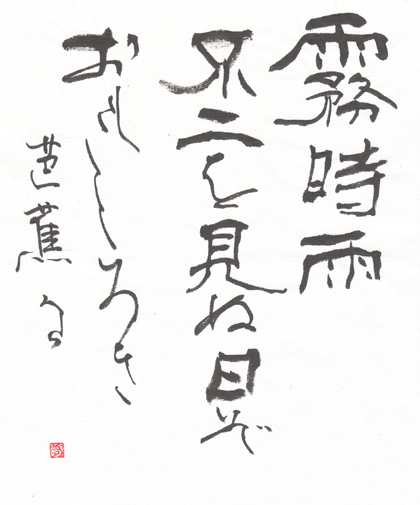 霧時雨
不二を見ぬ日ぞ
おもしろき
芭蕉